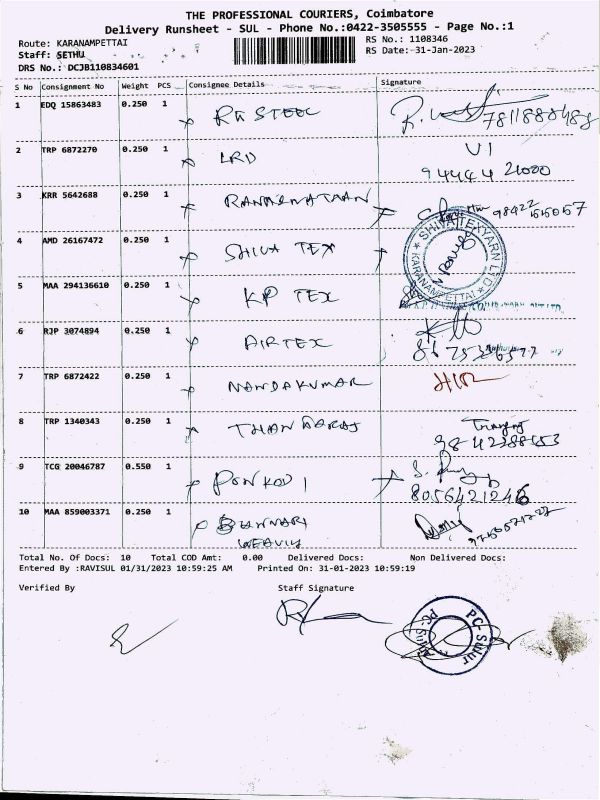 THE PROFESSIONAL COURIERS, Coimbatore
Delivery Runsheet - SUL - Phone No.:0422-3505555 - Page No.:1
Route: KARANAMPETTAI RS No.: 1108346
Staff: SETHU RS Date:-31-Jan-2023
DRS No.: DCJB110834601
S No Consignment No Weight PCS Consignee Details Signature
1 EDQ 15863483 0.250 1 RK STEEL 7811888488
2 TRP 6872270 0.250 1 LRD VI
94444 21000
3 KRR 5642688 0.250 1
4 AMD 26167472 0.250 1 SHIVA TEX SHIVA TEXYARN LTD KARANAMPETTAI
5 MAA 294136610 0.250 1 KP TEX
6 RJP 3074894 0.250 1 AIRTEX
7 TRP 6872422 0.250 1 NANDAKUMAR
8 TRP 1340343 0.250 1 THANGARAJ
9 TCG 20046787 0.550 1 PONKODI
8056421246
10 MAA 859003371 0.250 1 BANNARI
WEAVING
Total No. Of Docs: 10 Total COD Amt: 0.00 Delivered Docs: Non Delivered Docs:
Entered By :RAVISUL 01/31/2023 10:59:25 AM Printed On: 31-01-2023 10:59:19
Verified By Staff Signature
PC-Sulur